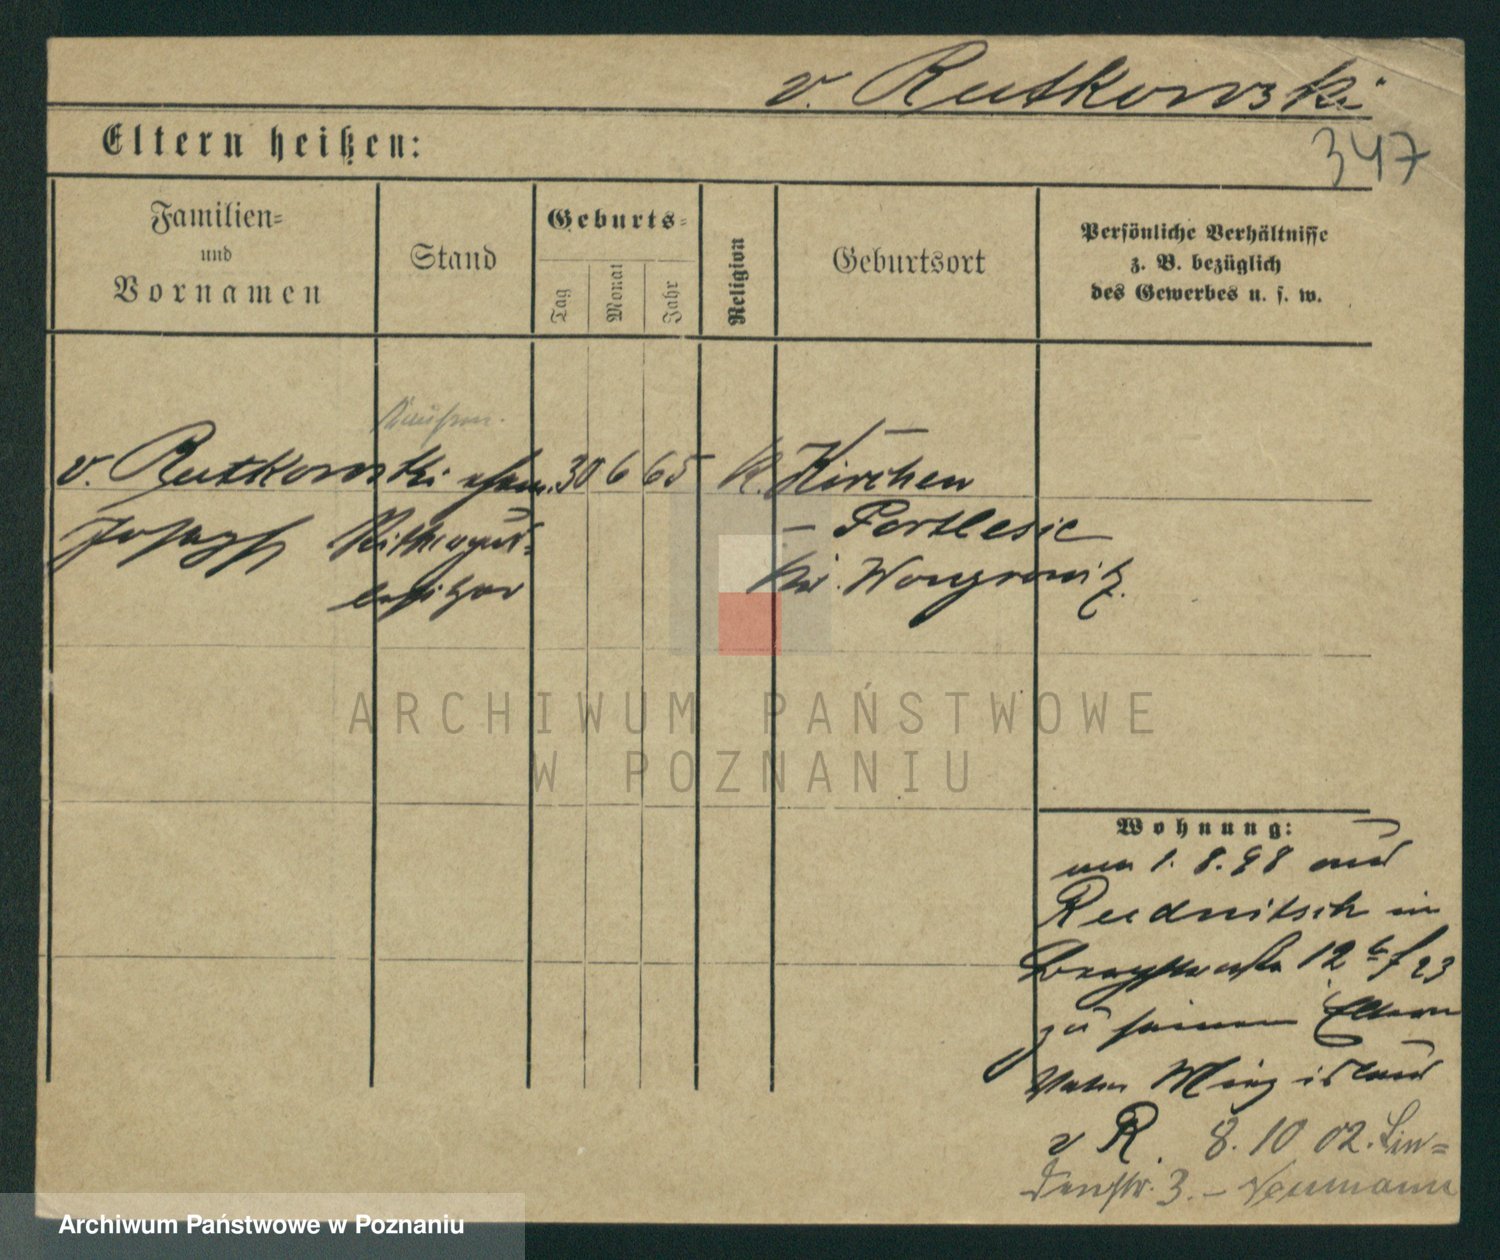 v. Rutkowski
347
Eltern heißen:
Familien-
und
Vornamen
Stand
Geburts-
Tag
Monat
Jahr
Religion
Geburtsort
Persönliche Verhältnisse
z. B. bezüglich
des Gewerbes u. s. w.
v. Rutkowski 30 6 65 K. Kirchen
Joseph Ritterguts- – Podlesie
besitzer Kr. Wongrowitz
ARCHIWUM PAŃSTWOWE
W POZNANIU
Wohnung:
am 1. 8. 98 aus
Rudnitsch in
12 23
zu seinen Eltern
Vater
v R. 8. 10 02. Lin-
denstr. 3. – Neumann
Archiwum Państwowe w Poznaniu